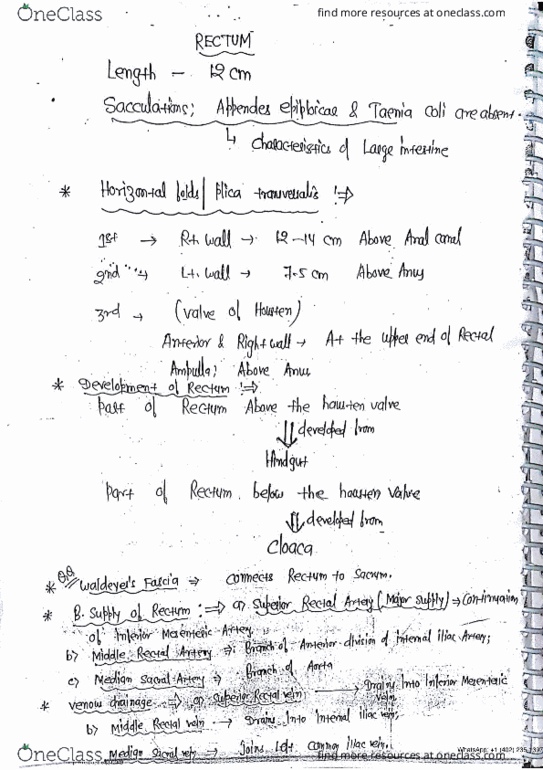 OneClass find more resources at oneclass.com
RECTUM
Length - 12 cm
Sacculations; Appendes epipbicae & Taenia coli are absent.
↳ characteristics of Large intestine
* Horizontal folds/ plica transversalis !⇒
1st → Rt. wall → 12-14 cm Above Anal canal
2nd → Lt. wall → 7.5 cm Above Anus
3rd → (valve of Housten)
Anterior & Right wall → At the upper end of Rectal
Ampulla; Above Anus
* Development of Rectum !⇒
part of Rectum Above the housten valve
⇓ developed from
Hindgut
part of Rectum below the housten valve
⇓ developed from
Cloaca
* QQ Waldeyer's Fascia ⇒ connects Rectum to Sacrum.
* B. Supply of Rectum :⇒ a) Superior Rectal Artery (Major supply) → continuation
of Inferior Mesenteric Artery
b) Middle Rectal Artery ⇒ Branch of Anterior division of Internal iliac Artery;
c) Median Sacral Artery ⇒ Branch of Aorta
* venous drainage ⇒ a) Superior Rectal vein → Drains Into Inferior Mesenteric
vein
b) Middle Rectal vein → Drains Into Internal iliac vein;
Median Sacral vein → Joins Left Common Iliac vein.
OneClass find more resources at oneclass.com